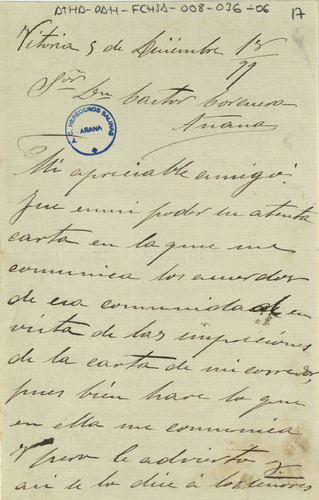 ATHA-DAH-FCHSA-008-036-06
17
Vitoria 5 de Diciembre 18
99
Sor Dn Castor
Añana
A.C. HEREDEROS SALINAS
AÑANA
Mi apreciable amigo:
Fue en mi poder su atenta
carta en la que me
comunica los acuerdos
de esa comunidad en
vista de las impresiones
de la carta de mi corredor,
pues bien hare lo que
en ella me comunica
pero le advierto y
asi se lo dice á los señores